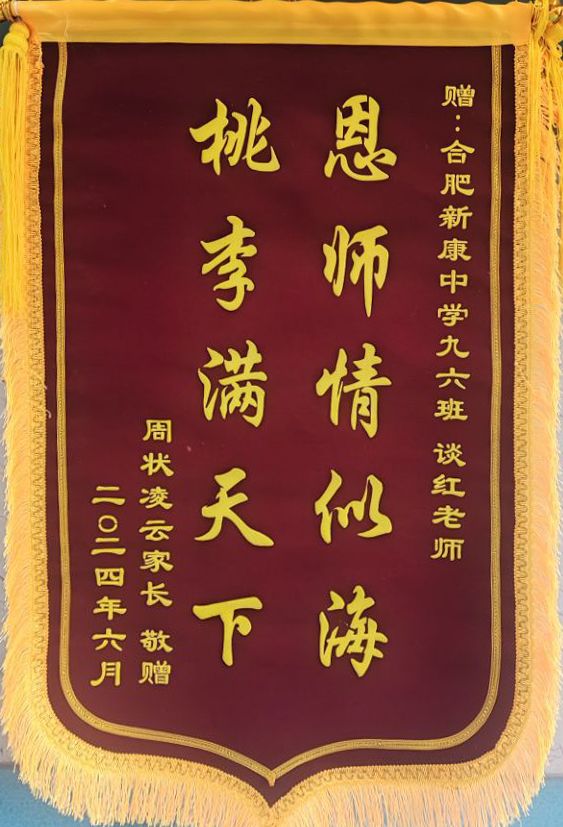 赠:合肥新康中学九六班 谈红老师
恩师情似海
桃李满天下
周状凌云家长 敬赠
二〇二四年六月